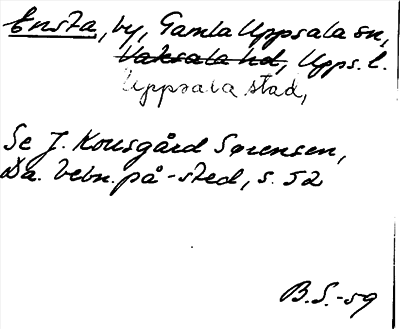 Ensta, by, Gamla Uppsala sn,
Vaksala hd, Upps. l.
Uppsala stad,
Se J. Kousgård Sørensen,
Da. bebn. på -sted, s. 52
B.S. -59